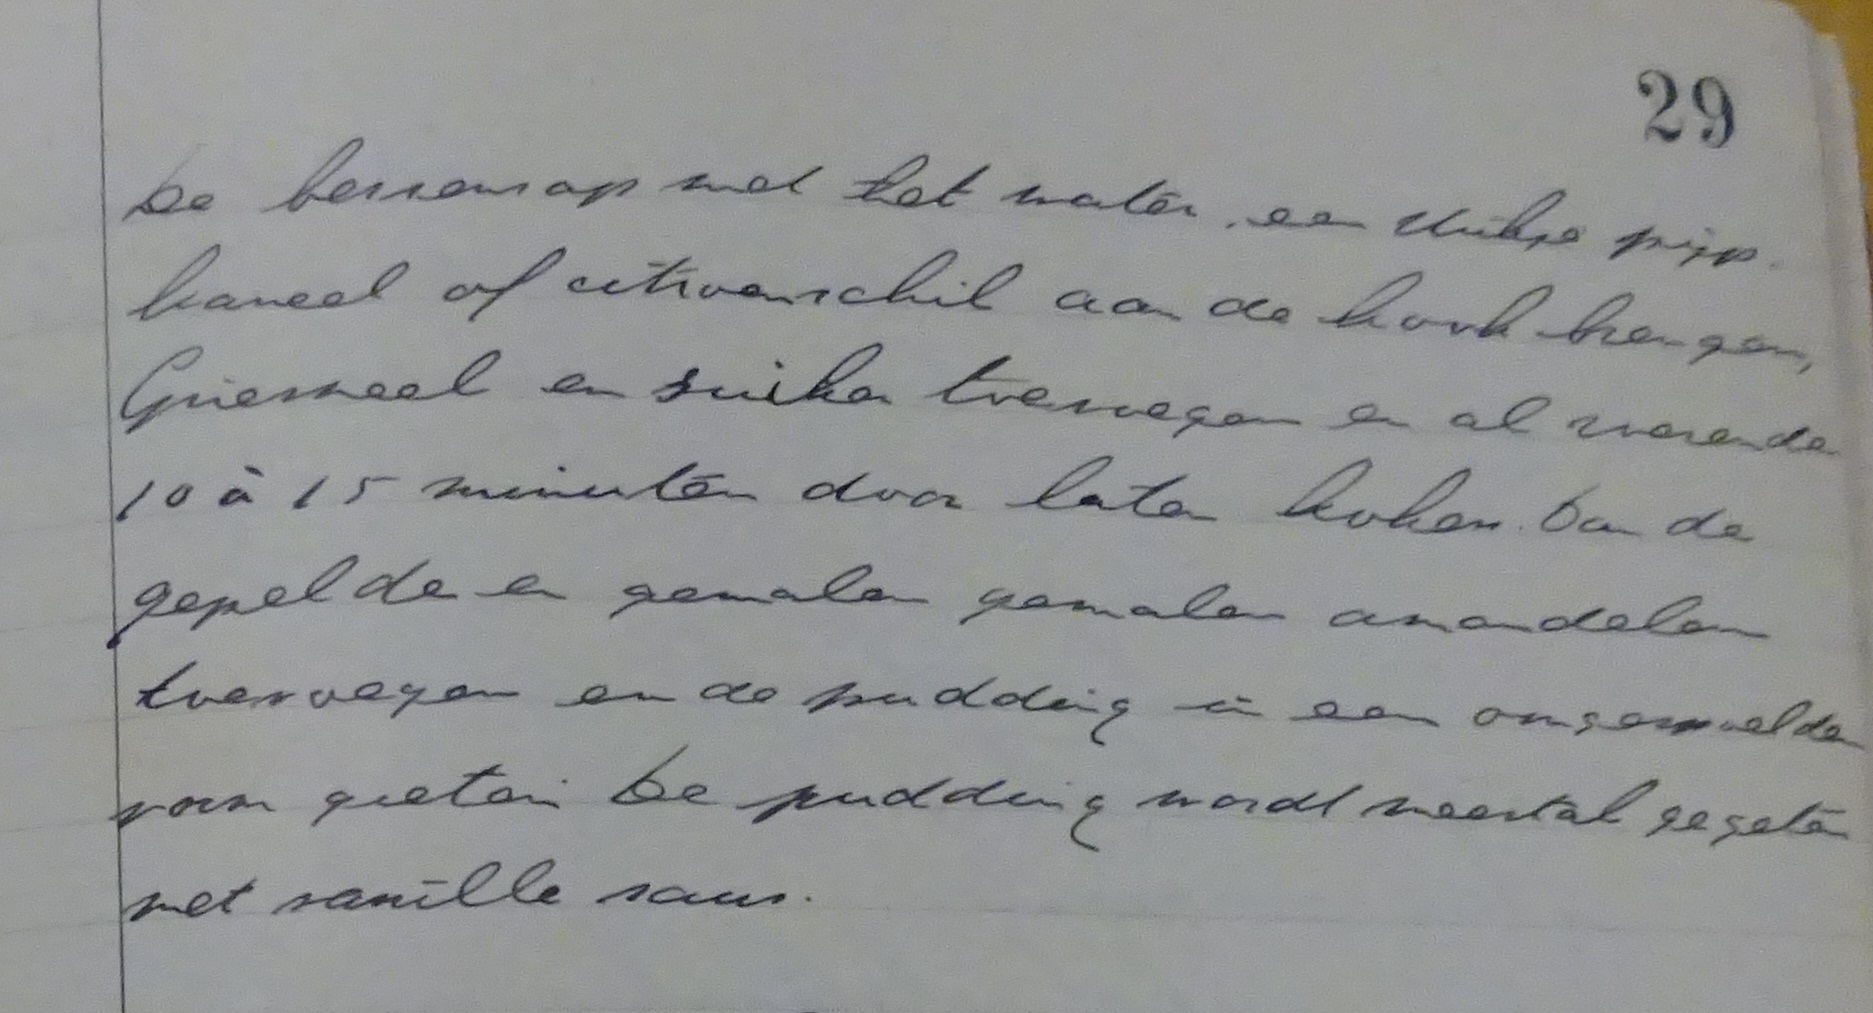 29
De bessensap met het water, een stukje pijp-
kaneel of citroenschil aan de kook brengen,
Griesmeel en suiker toevoegen en al roerende
10 à 15 minuten door laten koken. Dan de
gepelde en gemalen gemalen amandelen
toevoegen en de pudding in een omgespoelde
vorm gieten De pudding wordt meestal gegeten
met vanille saus.